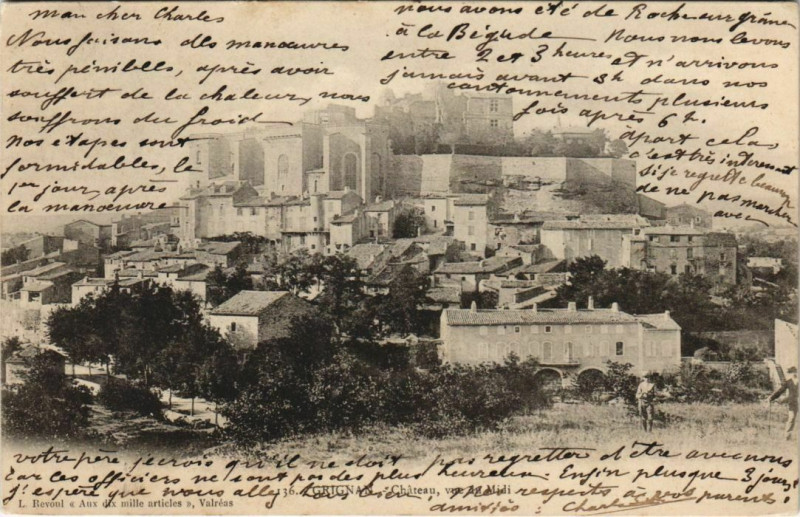 mon cher Charles
Nous faisons des manœuvres
très pénibles, après avoir
souffert de la chaleur, nous
souffrons du froid
Nos étapes sont
formidables, le
1er jour, après
la manœuvre
nous avons été de Rochegurgrâme
à la Bégude. Nous nous levons
entre 2 et 3 heures et n'arrivons
jamais avant 5h dans nos
cantonnements plusieurs
fois après 6h.
apart cela,
c'est très interessant
si je regrette beaucoup
de ne pas marcher
avec
votre père je crois qu'il ne doit pas regretter d'être avec nous
car les officiers ne sont pas des plus heureux. Enfin plus que 3 jours,
j'espère que vous allez bien respects à vos parents.
amitiés: Charles
36. GRIGNAN - Château, vue du Midi
L. Revoul « Aux dix mille articles », Valréas